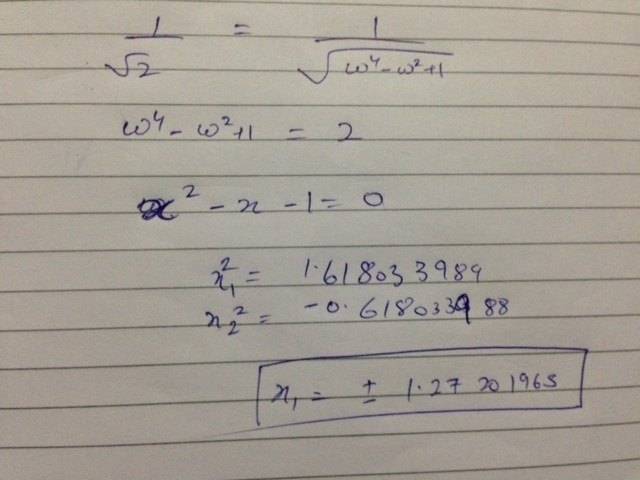 1/√2 = 1/√(ω⁴-ω²+1)
ω⁴ - ω²+1 = 2
x² - x - 1 = 0
x₁² = 1.618033989
x₂² = -0.618033988
x₁ = ± 1.27201965